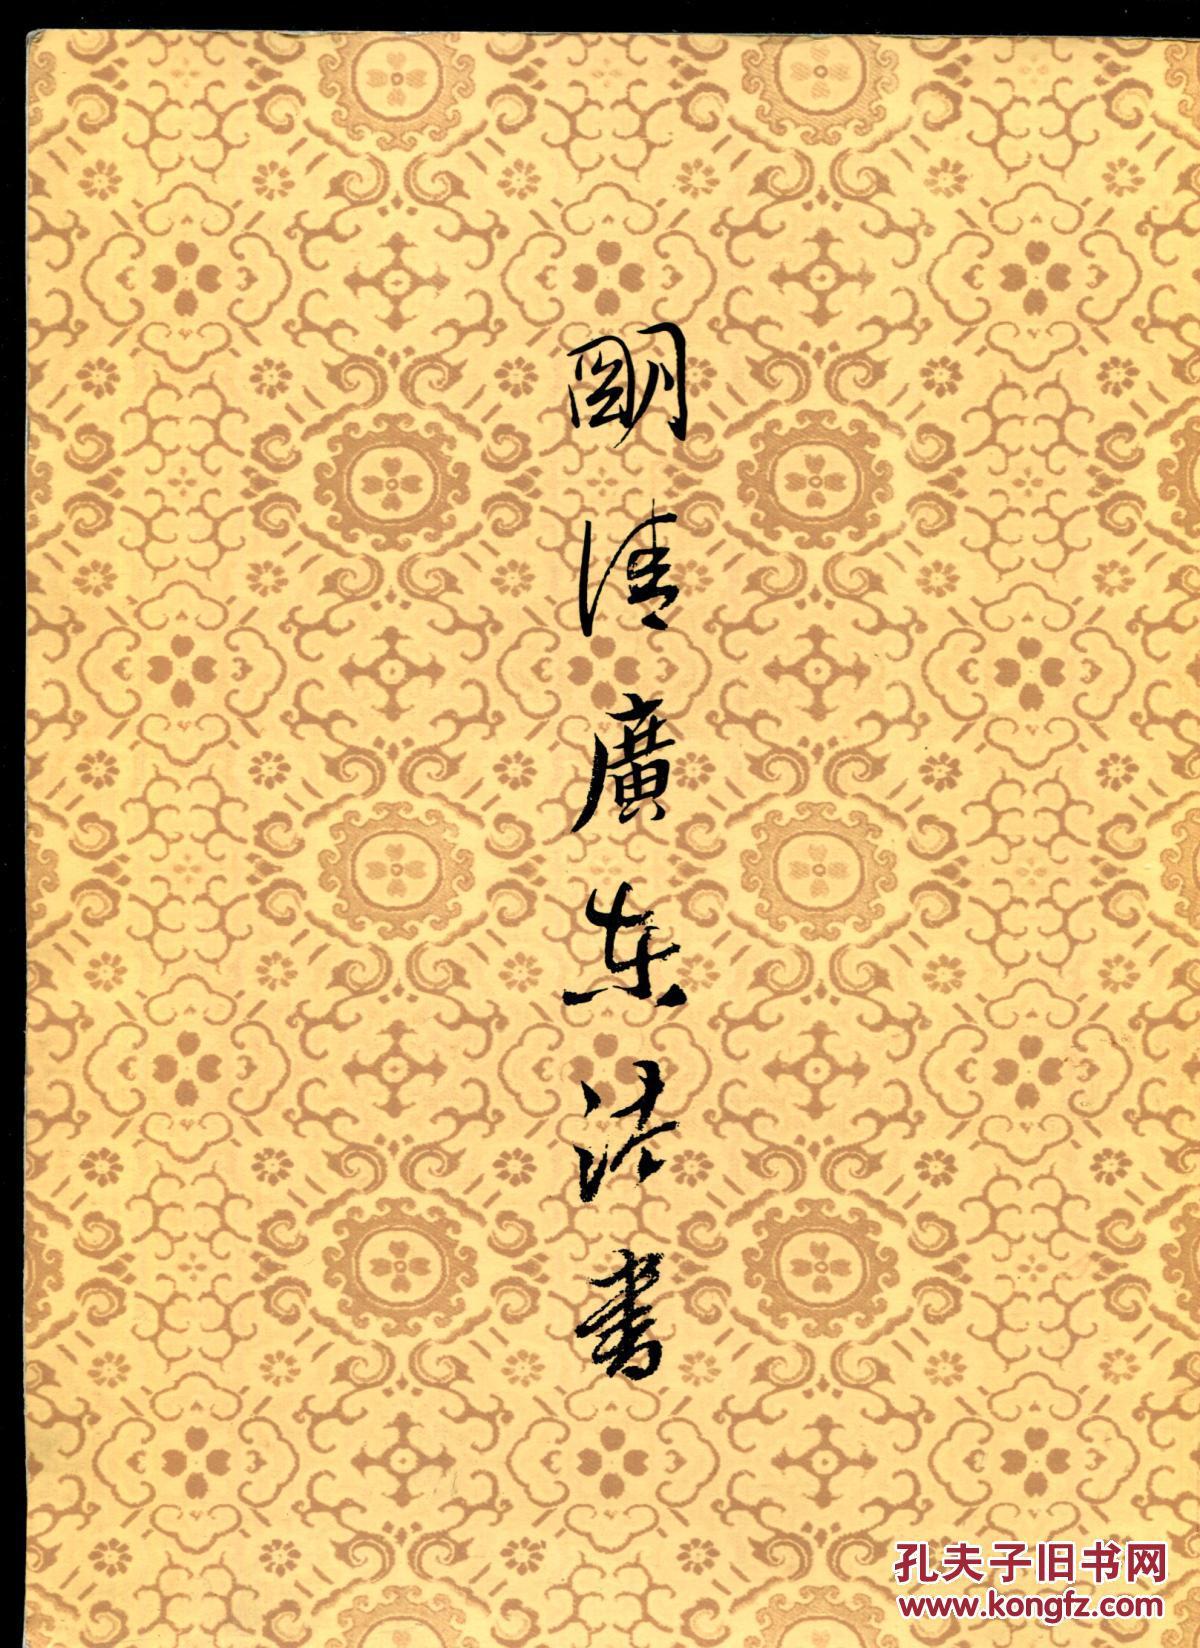 明清廣东法書
孔夫子旧书网
www.kongfz.com